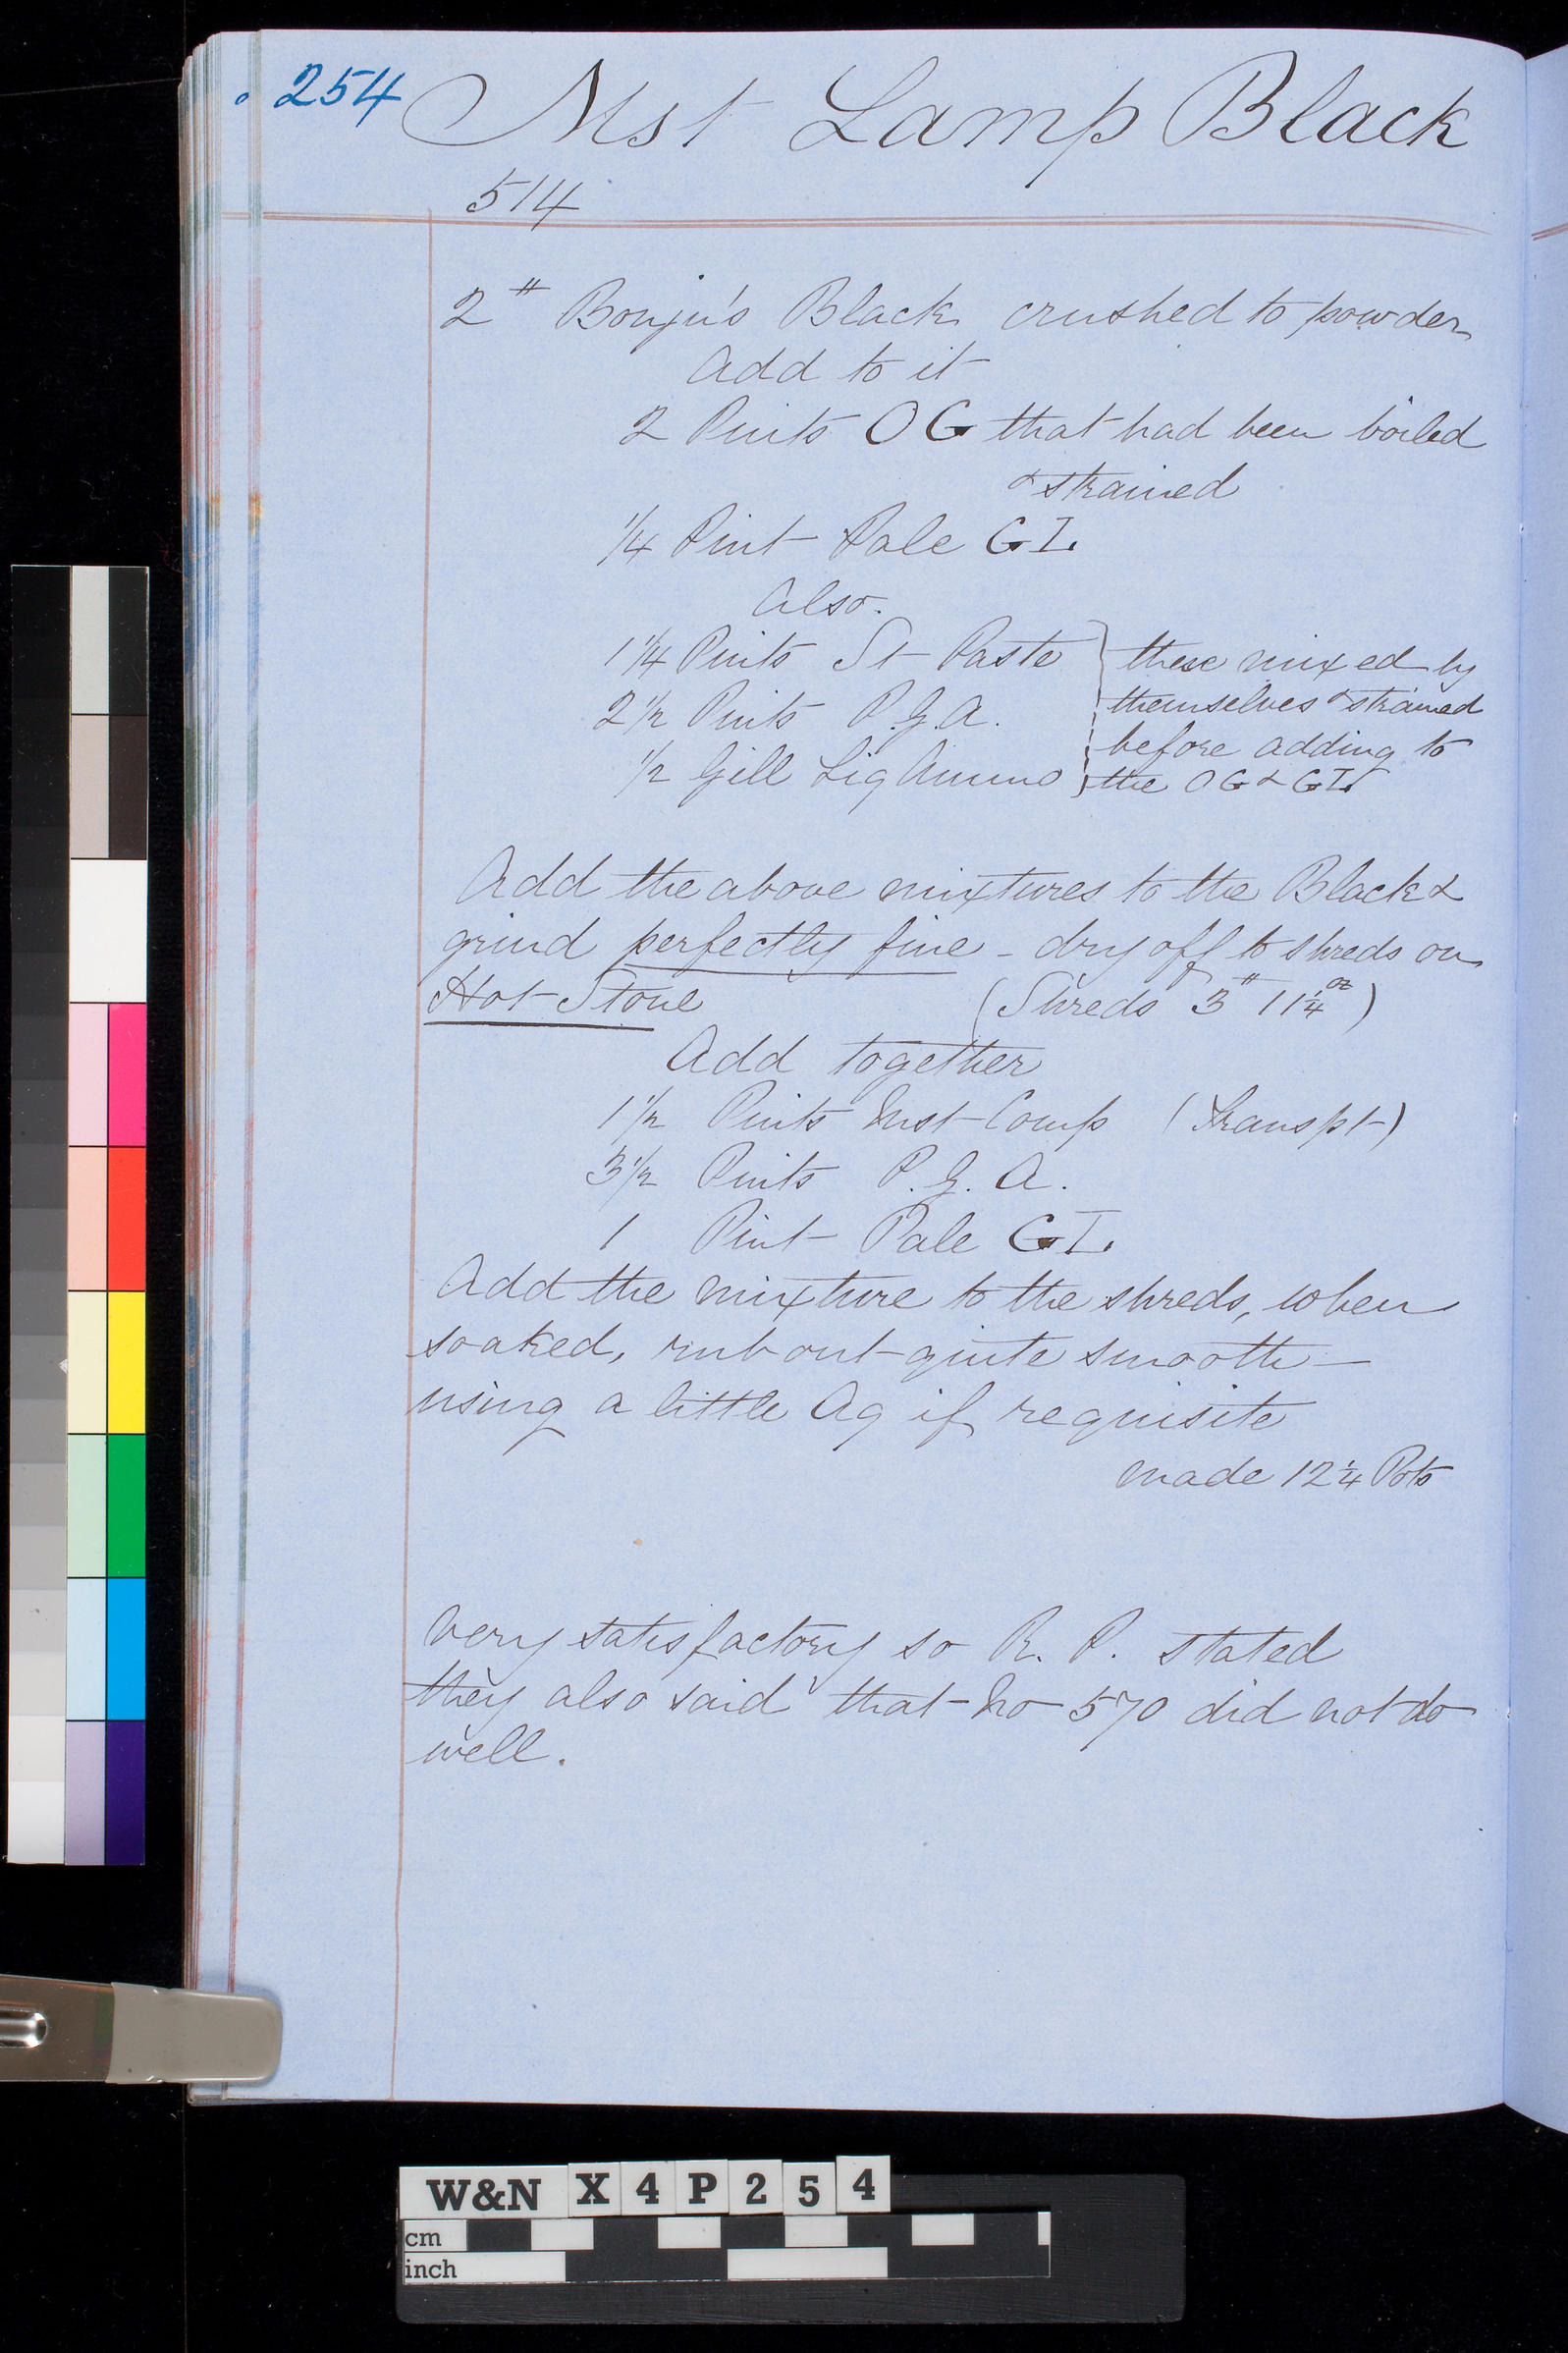 254 Mst Lamp Black
514
2 # Bonju's Black crushed to powder
Add to it
2 Pints OG that had been boiled
& strained
1/4 Pint Pale GI.
Also.
1 1/4 Pints St Paste } these mixed by
2 1/2 Pints P.G.A. themselves & strained
1/2 Gill Liq Ammo before adding to
the OG & GI.
Add the above mixtures to the Black &
grind perfectly fine - dry off to shreds on
Hot Stone (Shreds 3 # 11 1/4 oz)
Add together
1 1/2 Pints Mst Comp (Transpt)
3 1/2 Pints P.G.A.
1 Pint Pale GI.
Add the mixture to the shreds, when
soaked, rub out quite smooth —
using a little Aq if requisite
made 12 1/4 Pots
Very satisfactory so R. P. stated
they also said that No 570 did not do
well.
W&N X4P254
cm
inch